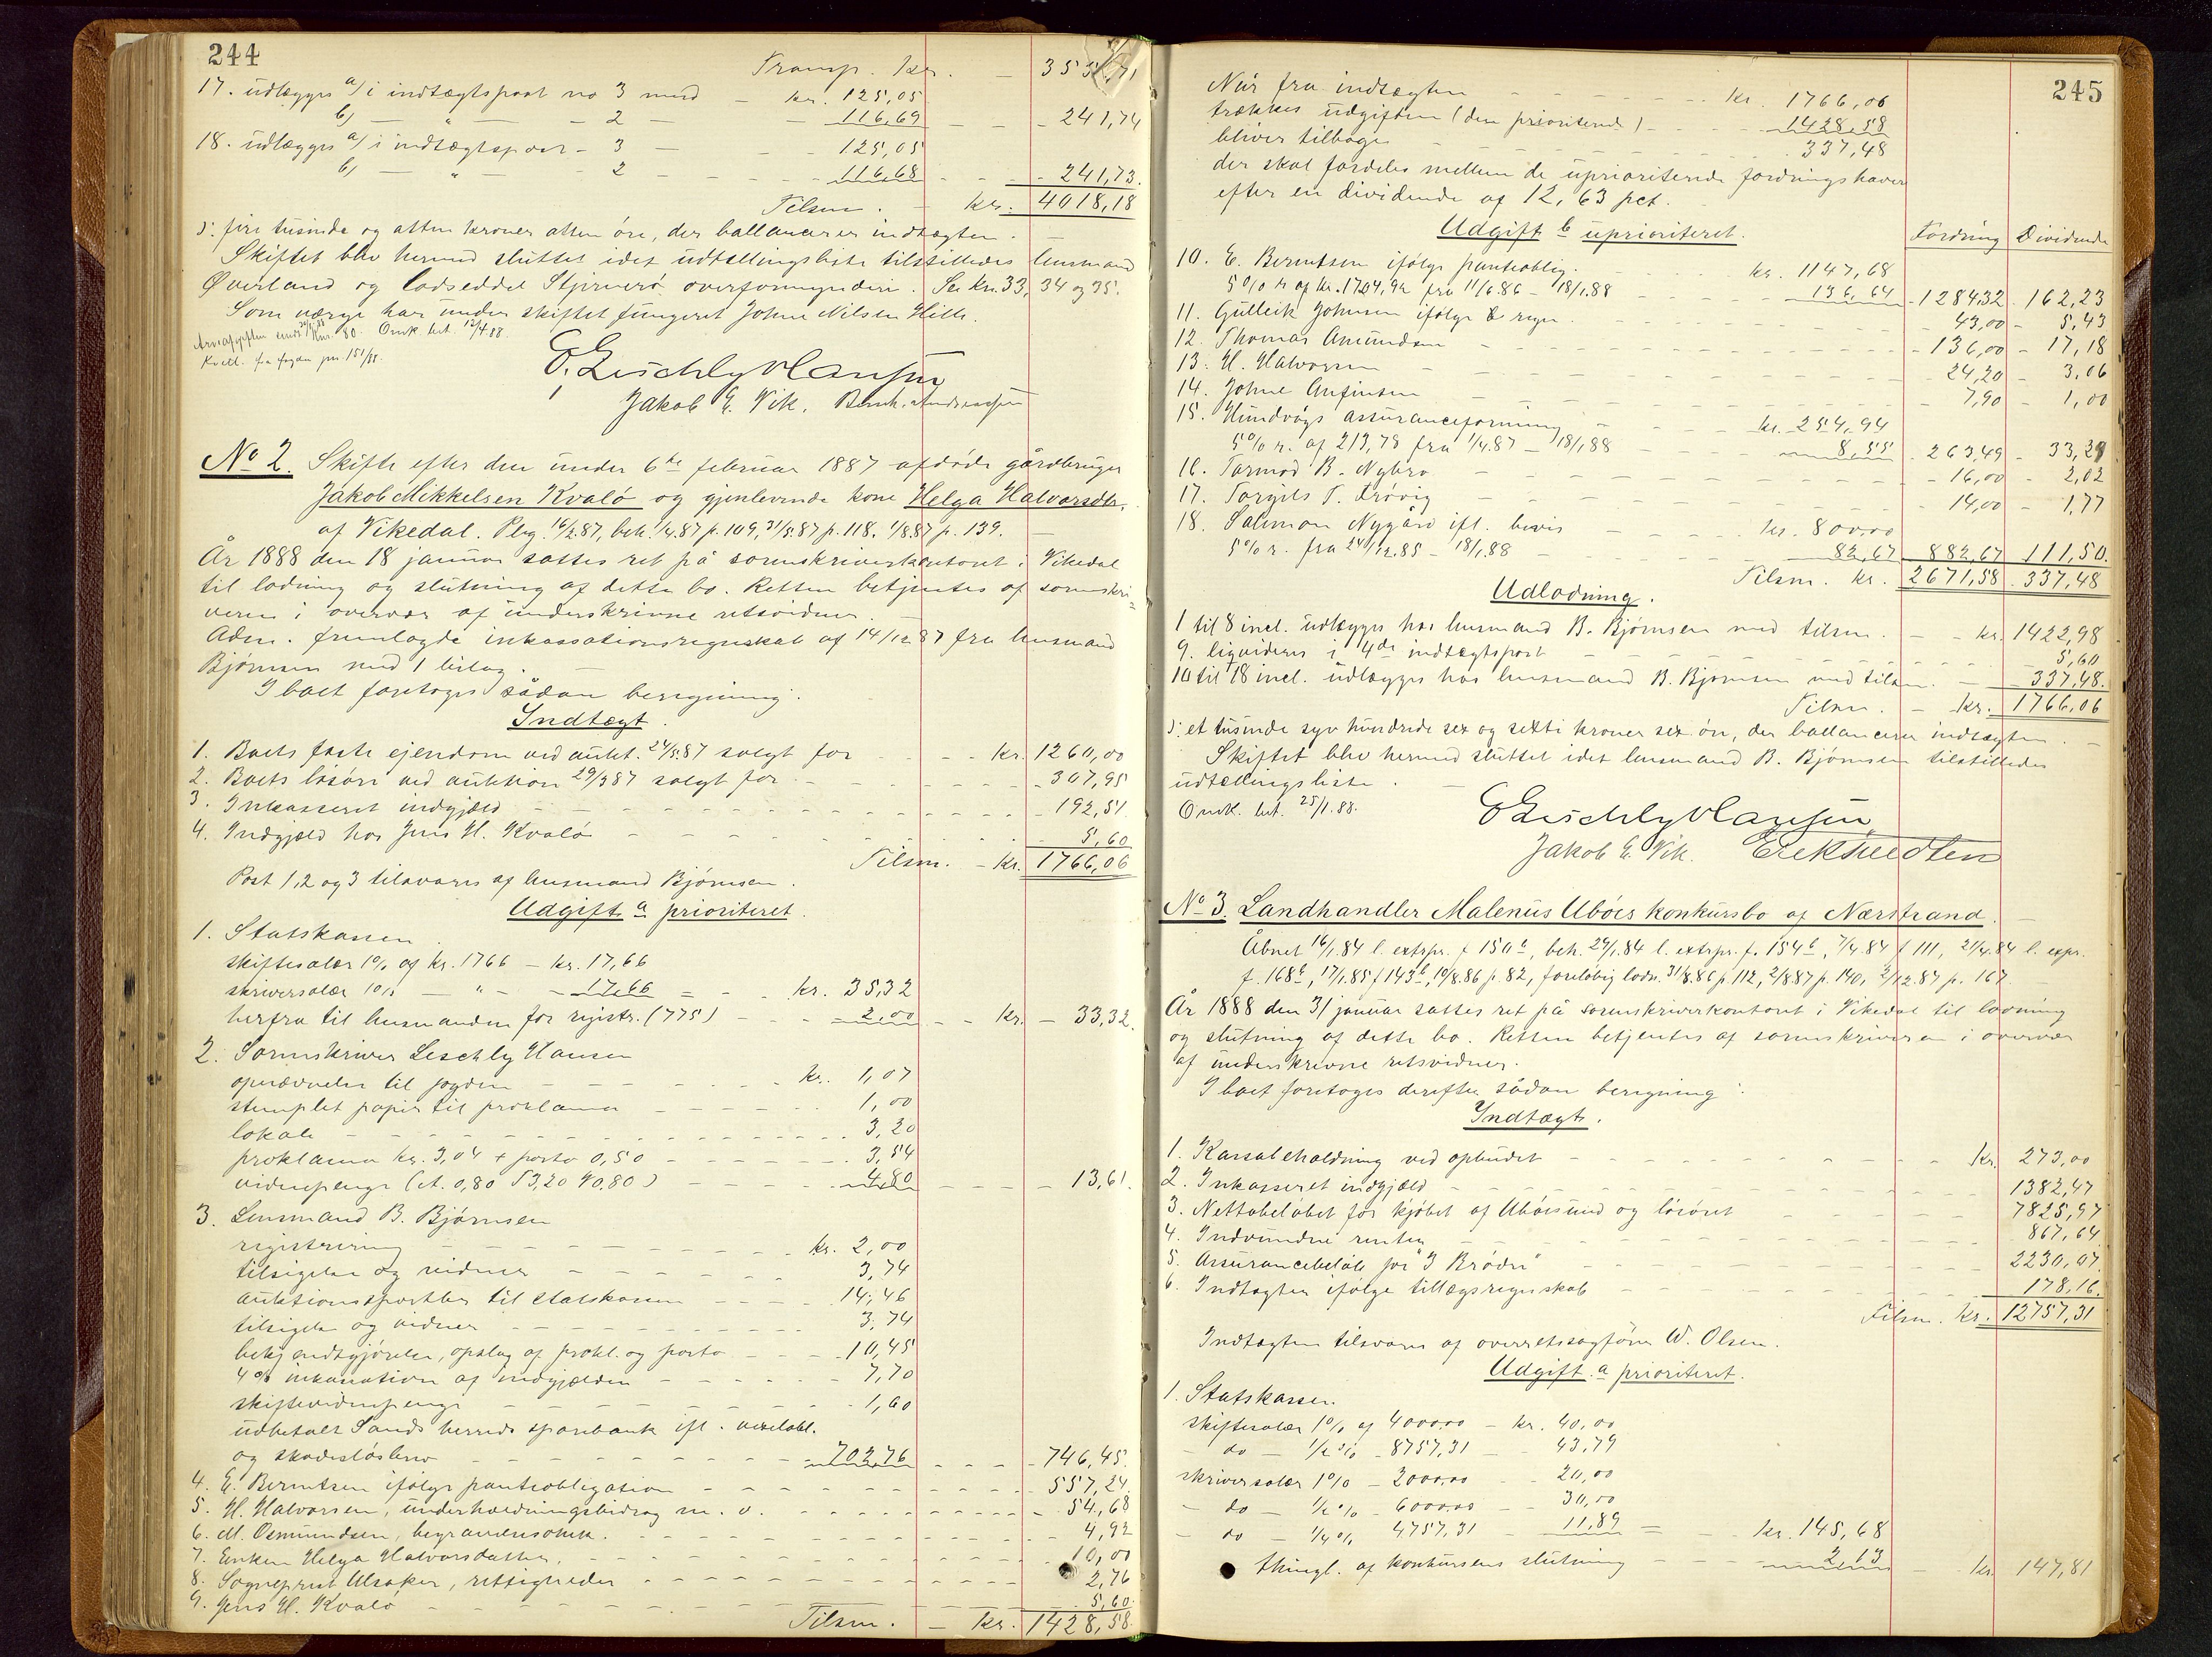 244
Transp. kr. — 355 ,71
17. udlægges a) i indtægtspost no 3 med — kr. 125,05
b) — " — 2 — 116,69 — 241,74
18. udlægges a) i indtægtspost - 3 — 125,05
b) — " — 2 — 116,68 — 241,73.
Tilsm. — kr. 4018,18
ɔ: fire tusinde og atten kroner atten øre, der ballancerer indtægten. —
Skiftet blev hermed sluttet idet udtællingsliste tilstilledes lensmand
Øverland og lodseddel Stjernerø overformynderi. Se kn. 33, 34 og 35.
Som værge har under skiftet fungeret Johne Nilsen Hille.
Arveafgiften Omk. bet. 12/4.88.
Kvitt. fra fogden pm 151/88.
E. Leschly Hansen
Jakob E. Vik. Bernh. Andreassen
No 2. Skifte efter den under 6te februar 1887 afdøde gårdbruger
Jakob Mikkelsen Kvalø og gjenlevende kone Helga Halvorsdtr.
af Vikedal. Reg. 16/2.87, beh. 1/4.87 p. 109, 31/5.87 p. 118. 1/8.87 p. 139.
År 1888 den 18 januar sattes ret på sorenskriverkontoret i Vikedal
til lodning og slutning af dette bo. Retten betjentes af sorenskri-
veren i overvær af underskrevne retsvidner. —
Adm. fremlagde inkassationsregnskab af 14/12 87 fra lensmand
Bjørnsen med 1 bilag. —
I boet foretoges sådan beregning:
Indtægt.
1. Boets faste ejendom ved aukt. 24/5.87 solgt for — kr. 1260,00
2. Boets løsøre ved auktion 29/3 87 solgt for — 307,95
3. Inkasseret indgjæld — 192,51
4. Indgjæld hos Jens H. Kvalø — 5,60
Tilsm. — kr. 1766,06
Post 1, 2 og 3 tilsvares af lensmand Bjørnsen.
Udgift a prioriteret.
1. Statskassen
skiftesalær 1% af kr. 1766 — kr. 17,66
skriversalær 1% — " — 17,66 = — kr. 35,32
herfra til lensmanden for registr. (775) — 2,00 — kr. — 33,32.
2. Sorenskriver Leschly Hansen
opnævnelse til fogden — kr. 1,07
stemplet papir til proklama — 1,00
lokale — 3,20
proklama kr. 3,04 + porto 0,50 — 3,54
vidnepenge (et. 0,80 S 3,20 4/0,80) — 4,80 — 13,61.
3. Lensmand B. Bjørnsen
registrering — kr. 2,00
tilsigelse og vidner — 3,74
auktionssportler til statskassen — 14,46
tilsigelse og vidner — 3,74
bekjendtgjørelse, opslag af prokl. og porto — 10,45
4% inkassation af indgjælden — 7,70
skiftevidnepenge — 1,60
udbetalt Sands herreds sparebank ifl. vexelobl.
og skadesløsbrev — 702,76 — 746,45.
4. E. Berentsen ifølge panteobligation — 557,24
5. H. Halvorsen, underholdningsbidrag m. v. — 54,68
6. M. Osmundsen, begravelsesomk. — 4,92
7. Enken Helga Halvorsdatter, — 10,00
8. Sogneprest Ulsaker, rettigheder — 2,76
9. Jens H. Kvalø — 5,60.
Tilsm. — kr. 1428,58.
245
Når fra indtægten — kr. 1766,06
trækkes udgiften (den prioriterede) — 1428,58
bliver tilbage — 337,48
der skal fordeles mellem de uprioriterede fordringshaver
efter en dividende af 12,63 pct.
Udgift b uprioriteret. Fordring Dividende
10. E. Berentsen ifølge panteoblig. — kr. 1147,68
5% r. af kr. 1704,92 fra 11/6.86 - 18/1.88 — 136,64 - 1284,32 - 162,23
11. Gulleik Johnsen ifølge regn. — 43,00 - 5,43
12. Thomas Amundsen — 136,00 - 17,18
13. H. Halvorsen — 24,20 - 3,06
14. Johne Anfinsen — 7,90 - 1,00
15. Hundvågs assuranceforening — kr. 254,94
5% r. af 213,78 fra 1/4.87 - 18/1.88 — 8,55 263,49 - 33,29
16. Tormod B. Nybro — 16,00 - 2,02
17. Torgils T. Drøvig — 14,00 - 1,77
18. Salimon Nygård ifl. bevis — kr. 800,00
5% r. fra 24/12.85 - 18/1.88 — 82,67 882,67 111,50.
Tilsm. kr. 2671,58. 337,48
Udlodning.
1 til 8 incl. udlægges hos lensmand B. Bjørnsen med tilsm. — kr. 1422,98
9. ligvideres i 4de indtægtspost — 5,60
10 til 18 incl. udlægges hos lensmand B. Bjørnsen med tilsm. — 337,48.
Tilsm. — kr. 1766,06
ɔ: et tusinde syv hundrede sex og sexti kroner sex øre, der ballancerer indtægten. —
Skiftet blev hermed sluttet idet lensmand B. Bjørnsen tilstilledes
udtællingsliste. —
Omk. bet. 25/1.88.
E Leschly Hansen
Jakob E. Vik. Erik Tvedten
No 3. Landhandler Malenius Ubøes konkursbo af Nærstrand.
Åbnet 16/1.84 l. extrpr. f 150b, beh. 29/1.84 l. extrpr. f. 154b, 7/4.84 f 111, 21/4.84 l. expr.
f. 168b, 17/1.85 f 143b, 10/8.86 p. 82, foreløbig lodn. 31/8.86 p 112, 2/8 87 p. 140, 2/12.87 p. 167
År 1888 den 31 januar sattes ret på sorenskriverkontoret i Vikedal til lodning
og slutning af dette bo. Retten betjentes af sorenskriveren i overvær
af underskrevne retsvidner.
I boet foretoges derefter sådan beregning:
Indtægt.
1. Kassabeholdning ved opbudet — kr. 273,00
2. Inkasseret indgjæld — 1382,47
3. Nettobeløbet for kjøbet af Ubøesund og løsøret — 7825,97
4. Indvundne renter — 867,64
5. Assurancebeløb for "3 Brødre" — 2230,07
6. Indtægter ifølge tillægsregnskab — 178,16.
Tilsm. kr. 12757,31
Indtægten tilsvares af overretssagfører W. Olsen.
Udgift. a prioriteret.
1. Statskassen
skiftesalær 1% af 4000,00 — kr. 40,00
- do — 1/2 % - 8757,31 — 43,79
skriversalær 1% — 2000,00 — 20,00
- do — 1/2 % - 6000,00 — 30,00
- do — 1/4 % 4757,31 — 11,89 = — kr. 145,68
thingl. af konkursens slutning — 2,13 — kr. 147,81